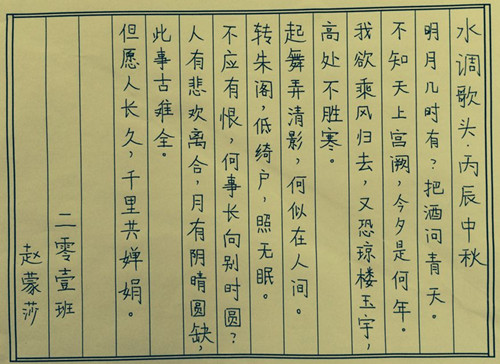 水调歌头·丙辰中秋
明月几时有？把酒问青天。
不知天上宫阙，今夕是何年。
我欲乘风归去，又恐琼楼玉宇，
高处不胜寒。
起舞弄清影，何似在人间。
转朱阁，低绮户，照无眠。
不应有恨，何事长向别时圆？
人有悲欢离合，月有阴晴圆缺，
此事古难全。
但愿人长久，千里共婵娟。
二零壹班
赵蒙莎